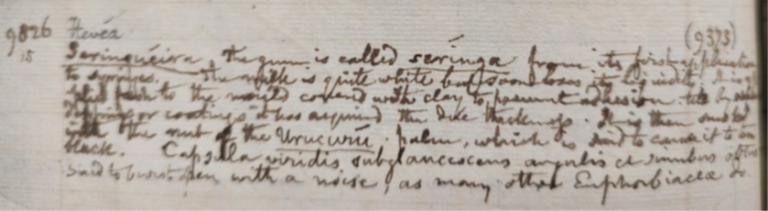 9826 Hevea (9373)
15 Seringueira, the gum is called seringa from its first application
to syringes. The milk is quite white but soon loses its
to the mould covered with clay to prevent adhesion till by
or coatings it has acquired the due thickness. It is then smoked
with the nut of the Urucuriú palm, which is said to cause it to turn
black. Capsula viridis subglaucescens angulis et
said to burst open with a noise, as many other Euphorbiaceæ do